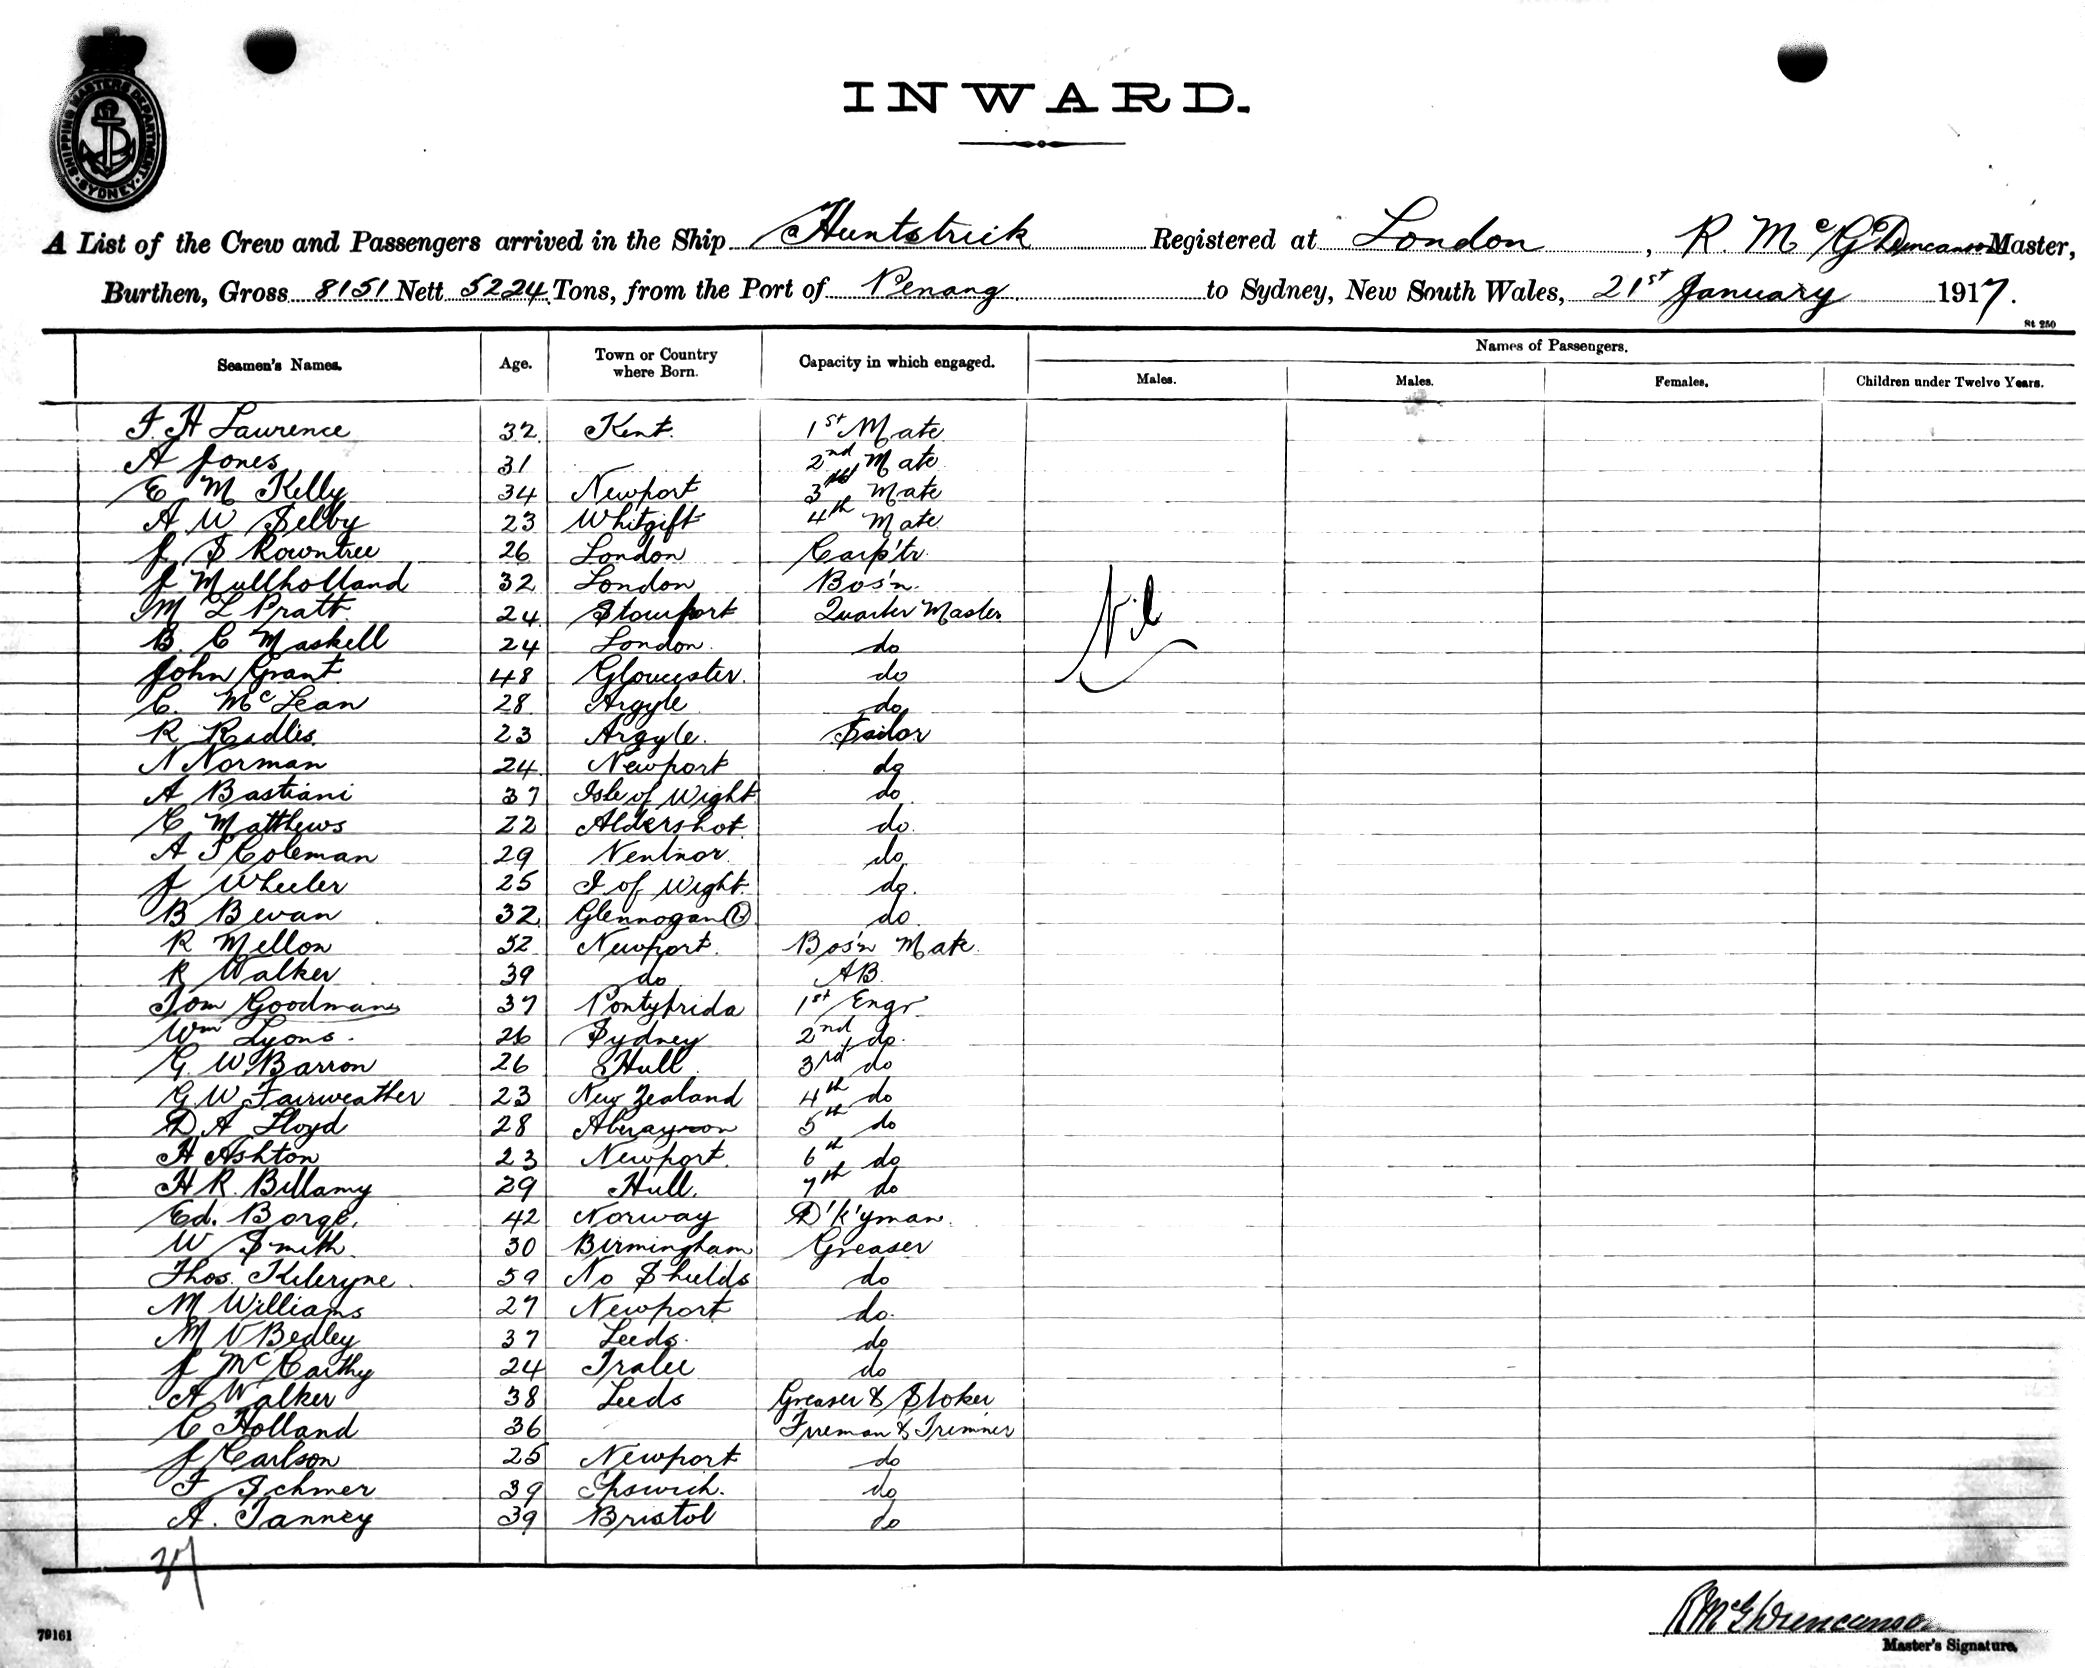 SHIPPING MASTERS DEPARTMENT
SYDNEY
INWARD.
A List of the Crew and Passengers arrived in the Ship Huntstrick Registered at London, R. McG Duncanson Master,
Burthen, Gross 8151 Nett 5224 Tons, from the Port of Penang to Sydney, New South Wales, 21st January 1917.
St 250
Seamen's Names. Age. Town or Country where Born. Capacity in which engaged. Names of Passengers.
Males. Males. Females. Children under Twelve Years.
F. H Laurence 32 Kent. 1st Mate
A Jones 31 2nd Mate
E M Kelly 34 Newport 3rd Mate
A W Selby 23 Whitgift 4th Mate
J S Rowntree 26 London Carp'tr.
J Mullholland 32 London Bos'n.
M L Pratt 24 Stourport Quarter Master
B. C Maskell 24 London do
John Grant 48 Gloucester. do
C. McLean 28 Argyle do
R Radlis 23 Argyle. Sailor
N Norman 24 Newport do
A Bastiani 37 Isle of Wight do
C Matthews 22 Aldershot do
A J Coleman 29 Ventnor do
J Wheeler 25 I of Wight. do.
B Bevan 32 Glennogan do
R Mellon 52 Newport. Bos'n Mate
R Walker 39 do AB.
Tom Goodman 37 Pontyprida 1st Engr
Wm Lyons. 26 Sydney 2nd do.
G. W. Barron 26 Hull 3rd do
G W Fairweather 23 New Zealand 4th do
D A Lloyd 28 Aberayron 5th do
H Ashton 23 Newport. 6th do
H R. Billamy 29 Hull. 7th do
Ed. Borge. 42 Norway D'k'yman.
W Smith 30 Birmingham Greaser
Thos. 59 No Shields do
M Williams 27 Newport do.
M V Bedley 37 Leeds. do
J McCarthy 24 Tralee do
A Walker 38 Leeds Greaser & Stoker
C Holland 36 Fireman & Trimmer
J Carlson 25 Newport do
F Schmer 39 Ipswich. do
A. Tanney 39 Bristol do
Nil
37
R McG Duncanson
Master's Signature.
79161